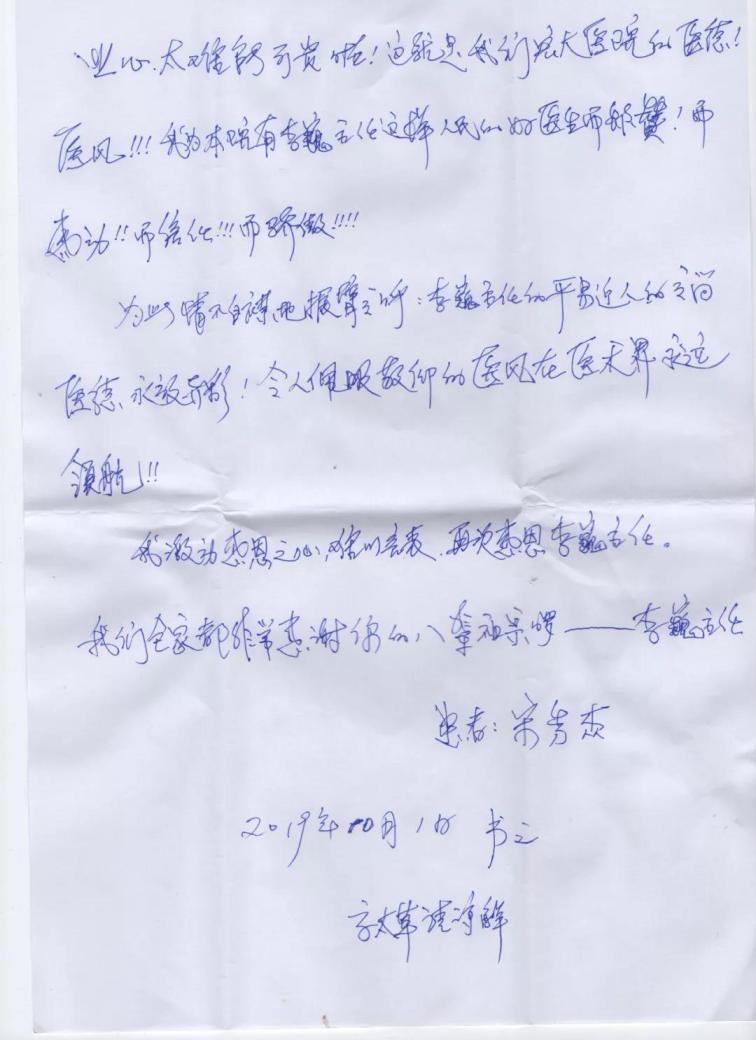 业心.太难能可贵啦！这就是我们宏大医院的医德！
医风!!! 我为本院有李巍主任这样人民的好医生而称赞！而
感动!! 而信任!!! 而骄傲!!!!
为此情不自禁地振臂高呼：李巍主任的平易近人的高尚
医德、永放异彩！令人佩服敬仰的医风在医术界永远
领航!!
我激动感恩之心,难以言表.再次感恩李巍主任。
我们全家都非常感谢你的八辈祖宗啰——李巍主任
患者：宋秀杰
2019年10月1日 书之
字太草请谅解